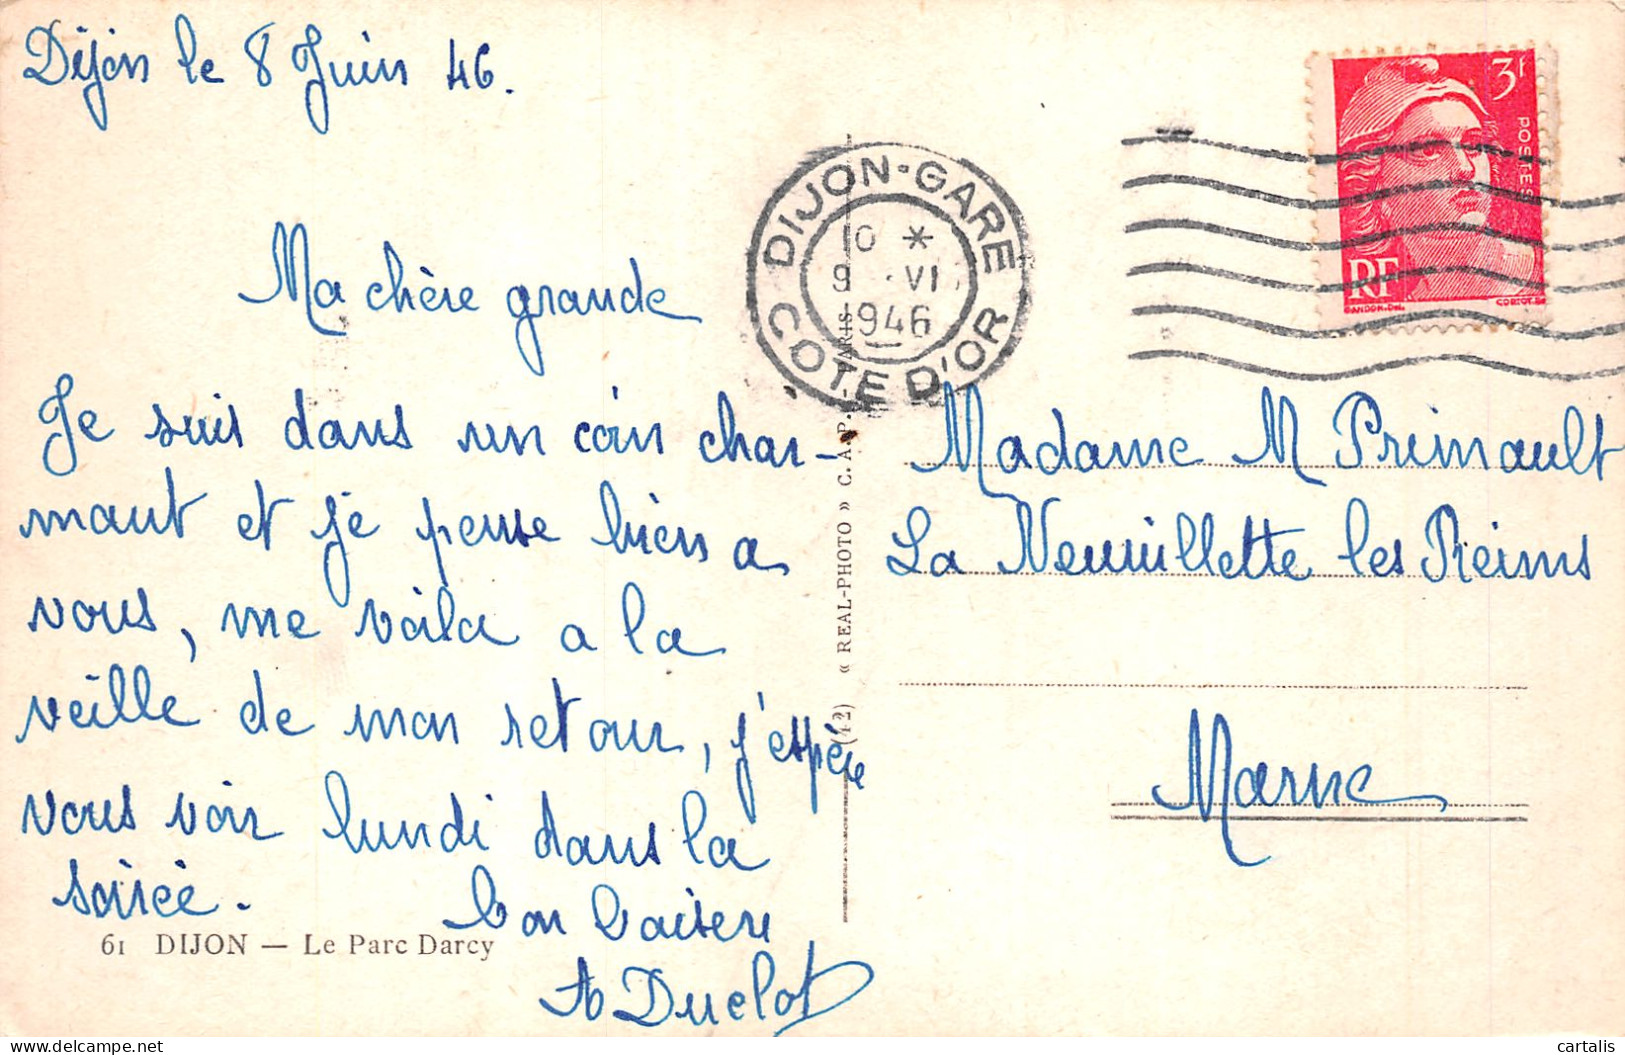 Dijon le 8 Juin 46.
Ma chère grande
Je suis dans un coin char-
mant et je pense bien a
vous, me voila a la
veille de mon retour, j'espère
vous voir lundi dans la
soirée.
bon baiser
A Duclot
61 DIJON — Le Parc Darcy
(42) « REAL-PHOTO » C. A. P. - PARIS
DIJON-GARE
10 *
9 VI
1946
COTE D'OR
3F
POSTES
RF
GANDON.DEL.
Madame M Prinault
La Neuvillette les Reims
Marne
cartalis
delcampe.net